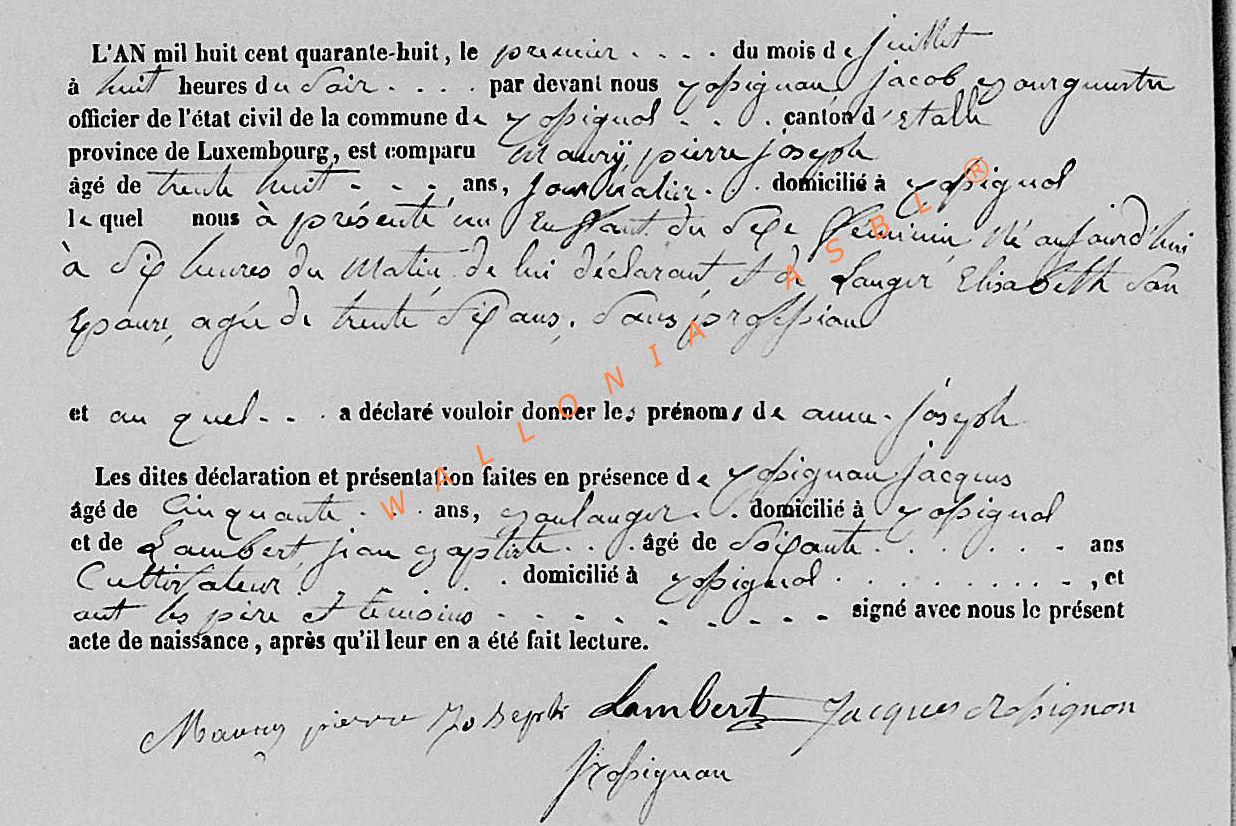 L'AN mil huit cent quarante-huit, le premier . . . . du mois de juillet
à huit heures du soir . . . . par devant nous Rossignon jacob Bourgmestre
officier de l'état civil de la commune de Rossignol - . . . canton d'Etalle
province de Luxembourg, est comparu Maurÿ pierre joseph
âgé de trente huit - - - ans, journalier . . domicilié à Rossignol
lequel nous à présenté un Enfant du sexe feminin né aujourd'hui
à six heures du matin de lui déclarant, et de Langer Elisabeth son
Epouse, agée de trente six ans, sans profession
et au quel - - . a déclaré vouloir donner les prénoms de anne - joseph
Les dites déclaration et présentation faites en présence de Rossignon jacques
âgé de Cinquante . . . ans, Boulanger . . domicilié à Rossignol
et de Lambert jean Baptiste . . . . âgé de soixante . . . . . . - ans
Cultivateur . - . - . domicilié à Rossignol . . . . . . . . . - , et
ont les père et témoins - - - - - - - - - - signé avec nous le présent
acte de naissance, après qu'il leur en a été fait lecture.
Maury pierre Joseph Lambert Jacques Rossignon
J Rossignon
WALLONIA ASBL ®